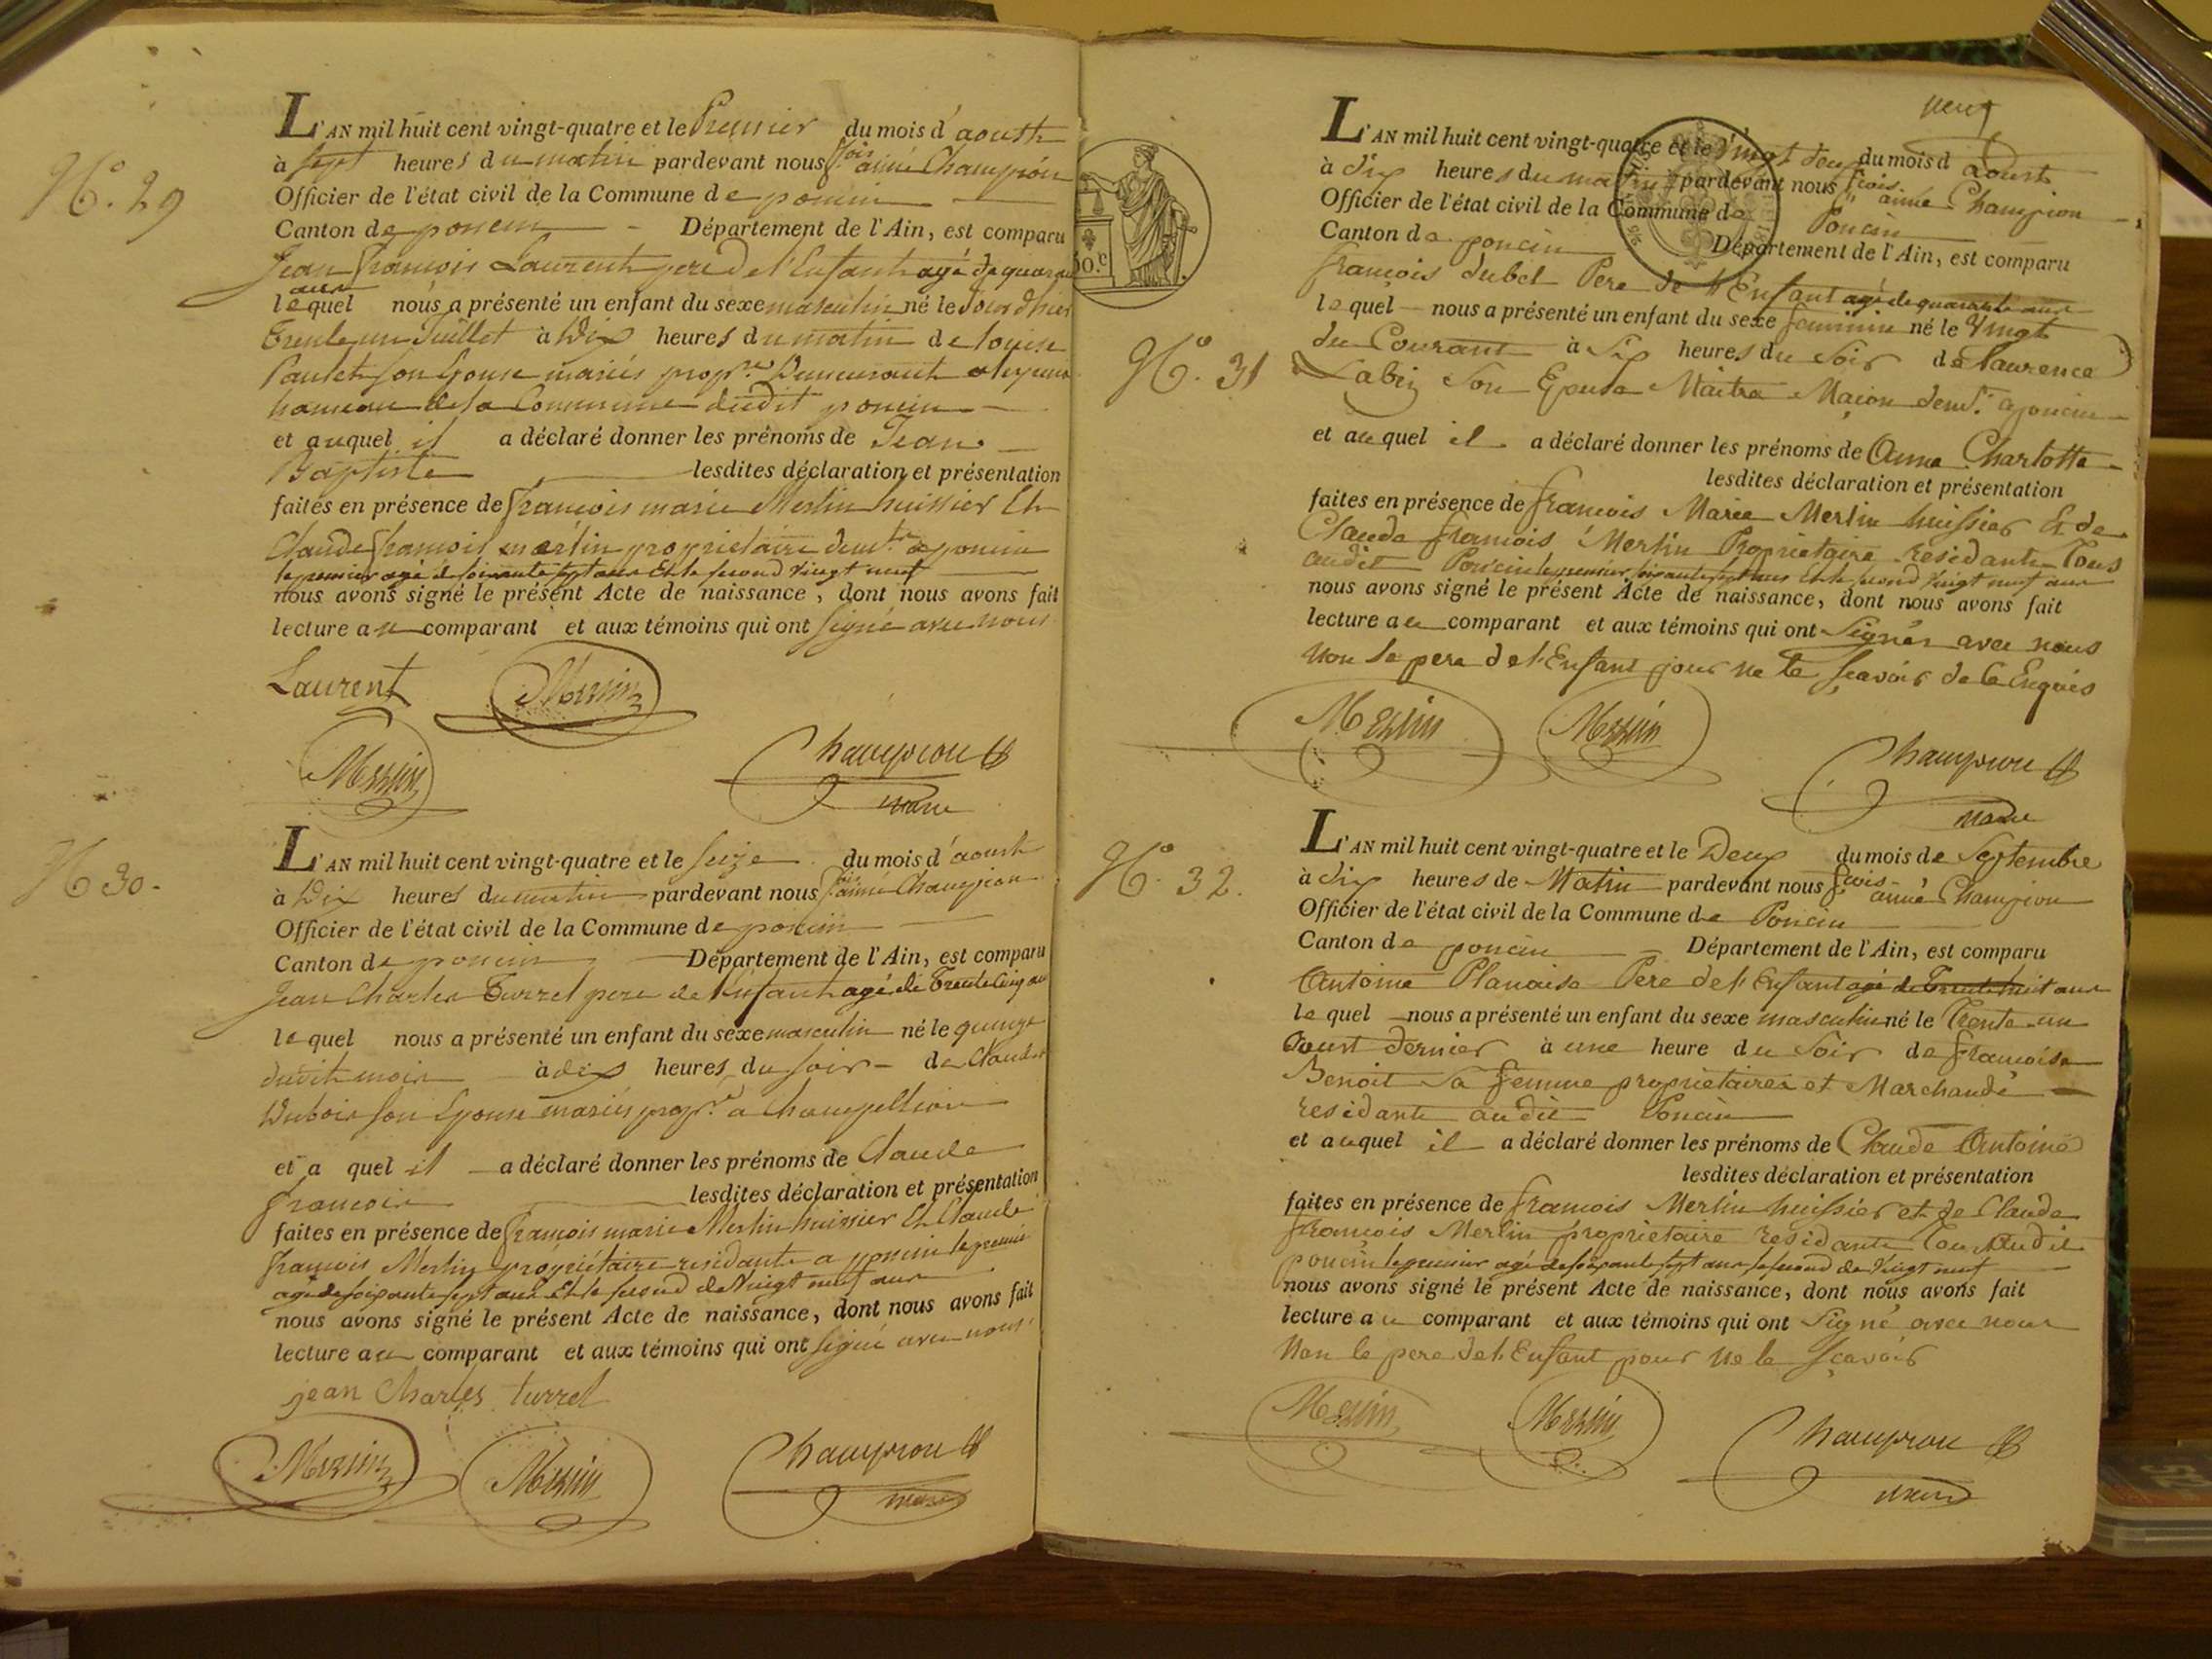 N.o 29
L'AN mil huit cent vingt-quatre et le Premier du mois d'aoust
à sept heures du matin pardevant nous f.cois aimé Champion
Officier de l'état civil de la Commune de poncin
Canton de poncin Département de l'Ain, est comparu
Jean francois Laurent pere de l'Enfant agé de quarante
ans
lequel nous a présenté un enfant du sexe masculin né le Jourd'hier
Trente un Juillet à Dix heures du matin de
Paulet son Epouse mariés prop.res Demeurant
hameau de la Commune dudit poncin
et auquel il a déclaré donner les prénoms de Jean
Baptiste lesdites déclaration et présentation
faites en présence de francois marie Merlin huissier Et
Claude francois merlin proprietaire demt. a poncin
le premier agé de soixante sept ans Et le second vingt neuf
nous avons signé le présent Acte de naissance, dont nous avons fait
lecture au comparant et aux témoins qui ont signé avec nous
Laurent Merlin
Merlin Champion
maire
N 30.
L'AN mil huit cent vingt-quatre et le seize du mois d'aoust
à Dix heures du matin pardevant nous f.cois aimé Champion
Officier de l'état civil de la Commune de poncin
Canton de poncin Département de l'Ain, est comparu
Jean Charles Turrel pere de l'Enfant agé de Trente Cinq ans
lequel nous a présenté un enfant du sexe masculin né le quinze
dudit mois à dix heures du soir de Claudine
Dubois son Epouse mariés prop.res a Champeillon
et a quel il a déclaré donner les prénoms de Claude
francois lesdites déclaration et présentation
faites en présence de francois marie Merlin huissier Et Claude
francois Merlin propriétaire residants a poncin le premier
agé de soixante sept ans Et le second de Vingt neuf ans
nous avons signé le présent Acte de naissance, dont nous avons fait
lecture au comparant et aux témoins qui ont signé avec nous.
jean Charles turrel
Merlin Merlin Champion
maire
neuf
50.c
L'AN mil huit cent vingt-quatre et le vingt deux du mois d Aoust
à dix heures du matin pardevant nous f.cois aimé Champion
Officier de l'état civil de la Commune de Poncin
Canton de poncin Département de l'Ain, est comparu
francois dubet Pere de l'Enfant agé de quarante ans
lequel nous a présenté un enfant du sexe feminin né le Vingt
N.o 31
du Courant à Six heures du Soir de Laurence
Labry Son Epouse Maitre Maçon demt. a poncin
et auquel il a déclaré donner les prénoms de Anne Charlotte
lesdites déclaration et présentation
faites en présence de francois Marie Merlin huissier Et de
Claude francois Merlin Proprietaire residants Tous
audit Poncin le premier soixante sept ans Et le second vingt neuf ans
nous avons signé le présent Acte de naissance, dont nous avons fait
lecture au comparant et aux témoins qui ont Signés avec nous
Non le pere de l'Enfant pour ne le sçavoir de ce Enquis
Merlin Merlin Champion
maire
N.o 32.
L'AN mil huit cent vingt-quatre et le Deux du mois de Septembre
à dix heures de Matin pardevant nous f.cois aimé Champion
Officier de l'état civil de la Commune de Poncin
Canton de poncin Département de l'Ain, est comparu
Antoine Planaise Pere de l'Enfant agé de Trente huit ans
lequel nous a présenté un enfant du sexe masculin né le Trente un
Aoust dernier à une heure du Soir de francoise
Benoit Sa femme proprietaires et Marchande
residants audit Poncin
et auquel il a déclaré donner les prénoms de Claude Antoine
lesdites déclaration et présentation
faites en présence de francois Merlin huissier et de Claude
francois Merlin proprietaire residants Tous Audit
poncin le premier agé de soixante sept ans le second de vingt neuf
nous avons signé le présent Acte de naissance, dont nous avons fait
lecture au comparant et aux témoins qui ont Signé avec nous
Non le pere de l'Enfant pour ne le sçavoir
Merlin Merlin Champion
maire